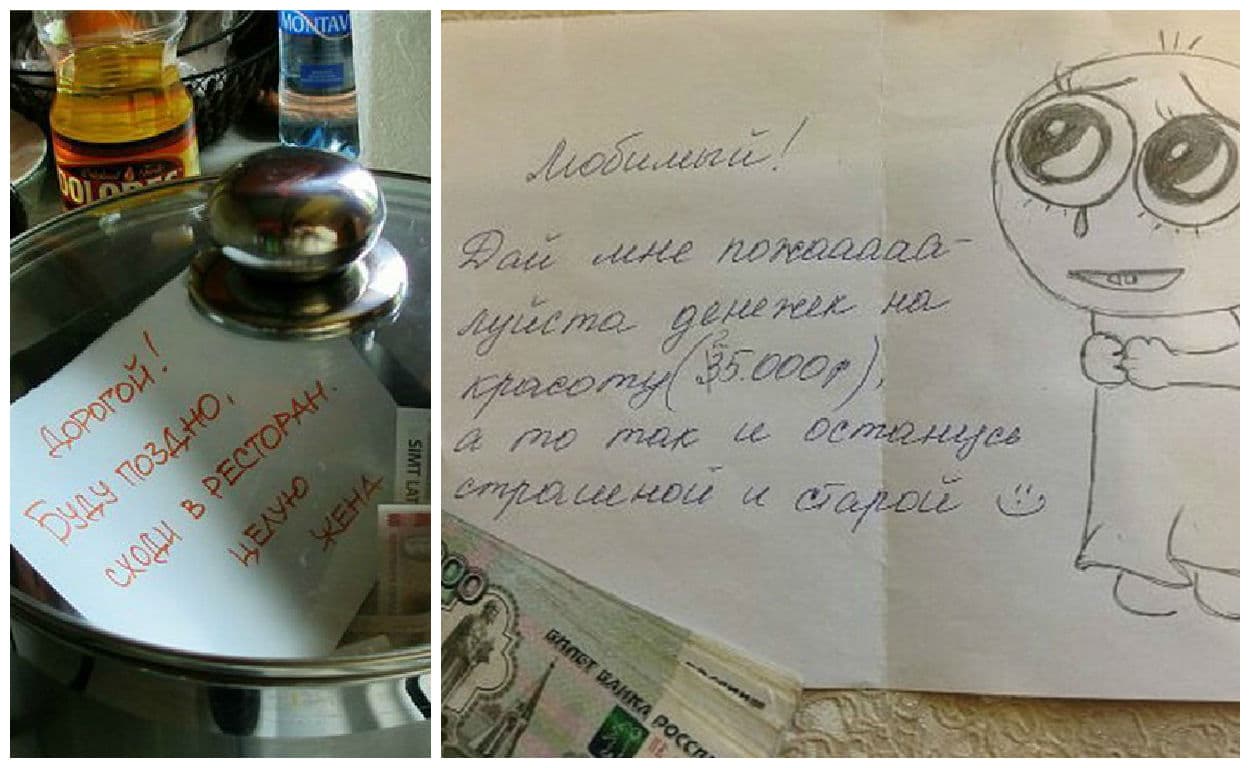 MONTAV
DOLORES
ДОРОГОЙ!
БУДУ ПОЗДНО,
СХОДИ В РЕСТОРАН.
ЦЕЛУЮ
ЖЕНА
SIMT LAT
Любимый!
Дай мне пожааааа-
луйста денежек на
красоту (35.000р),
а то так и останусь
страшной и старой
000
БИЛЕТ БАНКА РОССИ